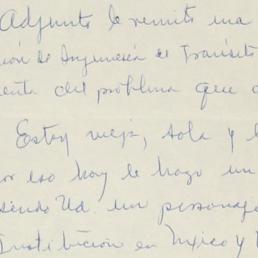 Adjunto le remito una
ción de Ingeniería de Tránsito
enta del problema que
Estoy vieja, sola y
or eso hoy le hago un
siendo Ud. un personage
Institución en México y